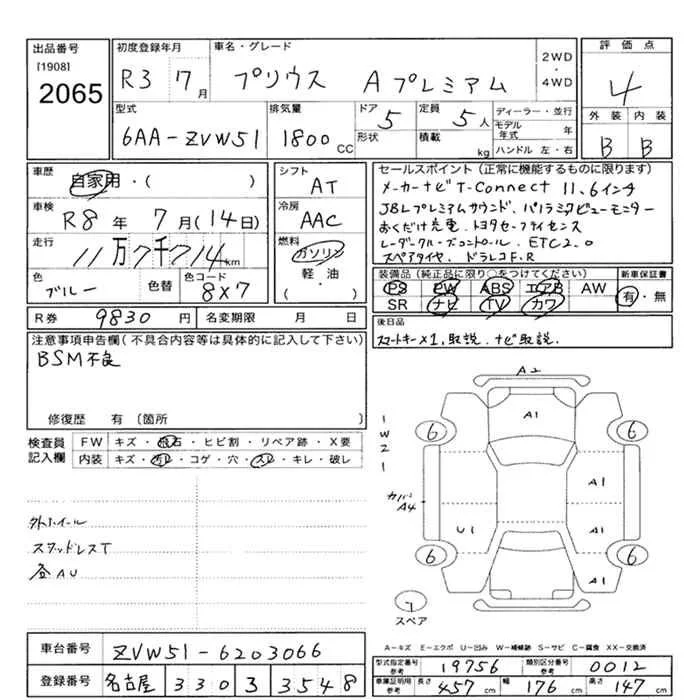 出品番号
[1908]
2065
初度登録年月
R3 7月
車名・グレード
プリウス Aプレミアム
2WD・4WD
評価点
4
型式
6AA-ZVW51
排気量
1800 CC
ドア
5
形状
定員
5人
積載
kg
ディーラー・並行
モデル年式 年
ハンドル 左・右
外装 内装
B B
車歴
自家用・( )
シフト
AT
車検
R8年 7月(14日)
冷房
AAC
走行
11万7千714km
燃料
ガソリン
軽・油
・( )
色
ブルー
色替
色コード
8X7
R券 9830円
名変期限 月 日
セールスポイント(正常に機能するものに限ります)
メーカーナビ T-Connect 11.6インチ
JBLプレミアムサウンド、パノラミックビューモニター
おくだけ充電、トヨタセーフティセンス
レーダークルーズコントロール、ETC2.0
スペアタイヤ、ドラレコF.R
装備品(純正品に限り○をつけてください)
PS PW ABS エアB AW
SR ナビ TV カワ
新車保証書
有・無
後日品
スマートキー×1,取説、ナビ取説、
注意事項申告欄(不具合内容等は具体的に記入して下さい)
BSM不良
修復歴 有 〔箇所 〕
検査員記入欄
FW キズ・飛石・ヒビ割・リペア跡・X要
内装 キズ・ヨゴレ・コゲ・穴・スレ・キレ・破レ
スタッドレスT
A2
A1
1
W
2
1
6 6
A1
カバー
A4
U1 A1
6 6
A1
スペア
A-キズ E-エクボ U-凹み W-補修跡 S-サビ C-腐食 XX-交換済
車台番号 ZVW51-6203066
登録番号 名古屋 330 ヨ 3548
型式指定番号 参考 19756
類別区分番号 参考 0012
車庫証明用 参考 長さ 457cm 幅 176cm 高さ 147cm